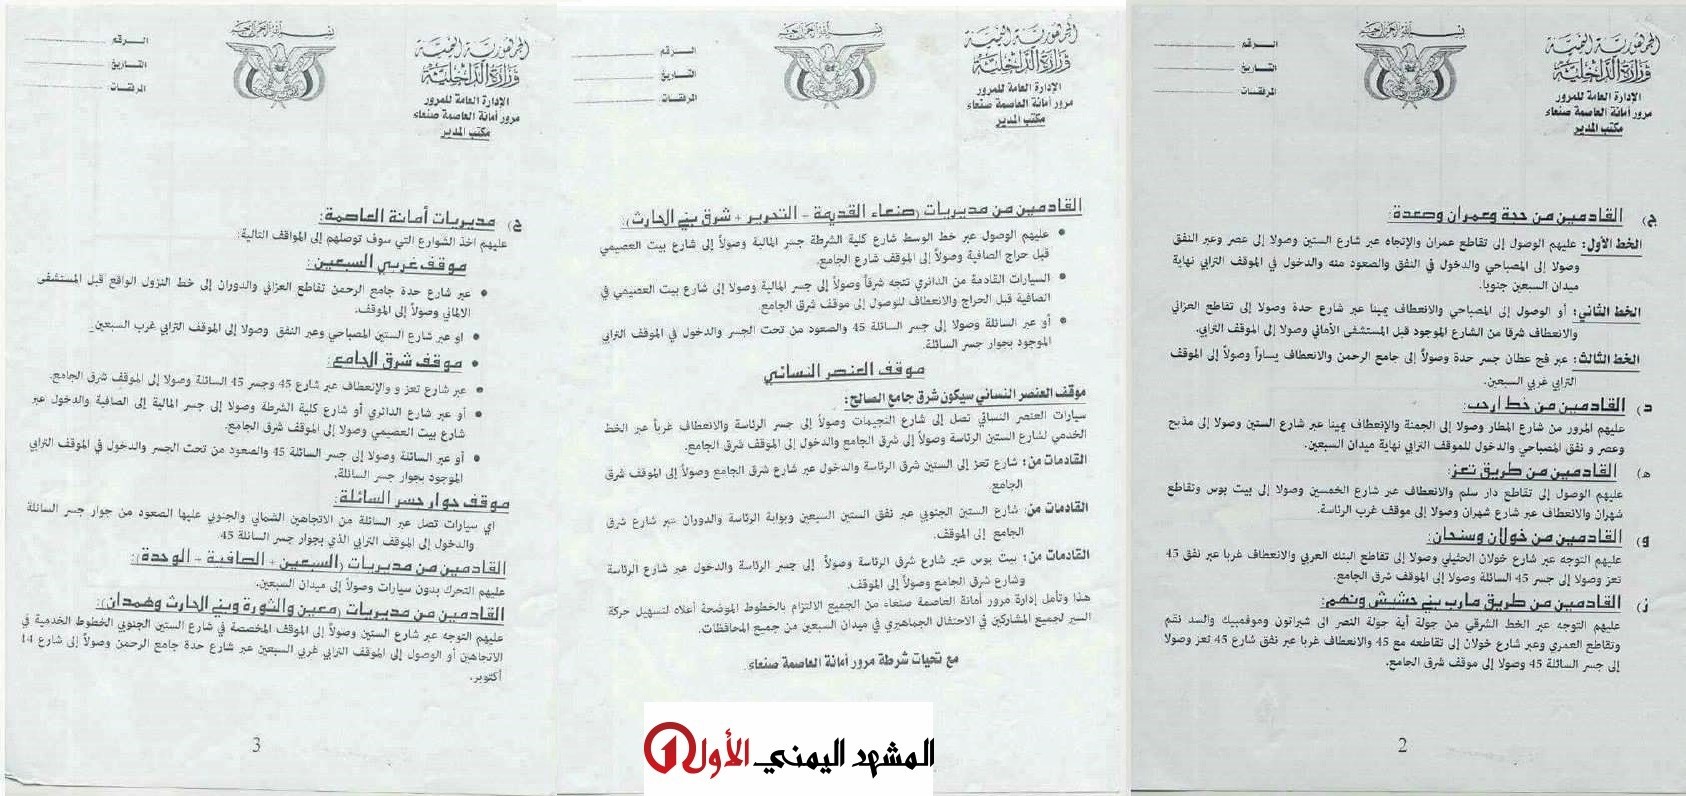 الجمهورية اليمنية
وزارة الداخلية
الإدارة العامة للمرور
مرور أمانة العاصمة صنعاء
مكتب المدير
بسم الله الرحمن الرحيم
الرقم
التاريخ
المرفقات
ج) القادمين من حجة وعمران وصعدة:
الخط الأول: عليهم الوصول إلى تقاطع عمران والإتجاه عبر شارع الستين وصولا إلى عصر وعبر النفق
وصولا إلى المصباحي والدخول في النفق والصعود منه والدخول في الموقف الترابي نهاية
ميدان السبعين جنوبا.
الخط الثاني: أو الوصول إلى المصباحي والانعطاف يمينا عبر شارع حدة وصولا إلى تقاطع العزاني
والانعطاف شرقا من الشارع الموجود قبل المستشفى الألماني وصولا إلى الموقف الترابي.
الخط الثالث: عبر فج عطان جسر حدة وصولاً إلى جامع الرحمن والانعطاف يساراً وصولاً إلى الموقف
الترابي غربي السبعين.
د) القادمين من خط أرحب:
عليهم المرور من شارع المطار وصولا إلى الجمنة والإنعطاف يمينا عبر شارع الستين وصولا إلى مذبح
وعصر و نفق المصباحي والدخول للموقف الترابي نهاية ميدان السبعين.
هـ) القادمين من طريق تعز:
عليهم الوصول إلى تقاطع دار سلم والانعطاف عبر شارع الخمسين وصولا إلى بيت بوس وتقاطع
شهران والانعطاف عبر شارع شهران وصولا إلى موقف غرب الرئاسة.
و) القادمين من خولان وسنحان:
عليهم التوجه عبر شارع خولان الحثيلي وصولا إلى تقاطع البنك العربي والانعطاف غربا عبر نفق 45
تعز وصولا إلى جسر 45 السائلة وصولا إلى الموقف شرق الجامع.
ز) القادمين من طريق مارب بني حشيش ونهم:
عليهم التوجه عبر الخط الشرقي من جولة آية جولة النصر الى شيراتون وموفمبيك والسد نقم
وتقاطع العمري وعبر شارع خولان إلى تقاطعه مع 45 والانعطاف غربا عبر نفق شارع 45 تعز وصولا
إلى جسر السائلة 45 وصولا إلى موقف شرق الجامع.
2
الجمهورية اليمنية
وزارة الداخلية
الإدارة العامة للمرور
مرور أمانة العاصمة صنعاء
مكتب المدير
بسم الله الرحمن الرحيم
الرقم
التاريخ
المرفقات
القادمين من مديريات (صنعاء القديمة - التحرير + شرق بني الحارث):
• عليهم الوصول عبر خط الوسط شارع كلية الشرطة جسر المالية وصولاً إلى شارع بيت العصيمي
قبل حراج الصافية وصولاً إلى الموقف شارع الجامع.
• السيارات القادمة من الدائري تتجه شرقاً وصولاً إلى جسر المالية وصولا إلى شارع بيت العصيمي في
الصافية قبل الحراج والانعطاف للوصول إلى موقف شرق الجامع.
• أو عبر السائلة وصولا إلى جسر السائلة 45 والصعود من تحت الجسر والدخول في الموقف الترابي
الموجود بجوار جسر السائلة.
موقف العنصر النسائي
موقف العنصر النسائي سيكون شرق جامع الصالح:
سيارات العنصر النسائي تصل إلى شارع النجيمات وصولاً إلى جسر الرئاسة والانعطاف غرباً عبر الخط
الخدمي لشارع الستين الرئاسة وصولاً إلى شرق الجامع والدخول إلى الموقف شرق الجامع.
القادمات من: شارع تعز إلى الستين شرق الرئاسة والدخول عبر شارع شرق الجامع وصولاً إلى الموقف شرق
الجامع.
القادمات من: شارع الستين الجنوبي عبر نفق الستين السبعين وبوابة الرئاسة والدوران عبر شارع شرق
الجامع إلى الموقف.
القادمات من: بيت بوس عبر شارع شرق الرئاسة وصولاً إلى جسر الرئاسة والدخول عبر شارع الرئاسة
وشارع شرق الجامع وصولاً إلى الموقف.
هذا وتأمل إدارة مرور أمانة العاصمة صنعاء من الجميع الالتزام بالخطوط الموضحة أعلاه لتسهيل حركة
السير لجميع المشاركين في الاحتفال الجماهيري في ميدان السبعين من جميع المحافظات.
مع تحيات شرطة مرور أمانة العاصمة صنعاء.
المشهد اليمني الأول
الجمهورية اليمنية
وزارة الداخلية
الإدارة العامة للمرور
مرور أمانة العاصمة صنعاء
مكتب المدير
بسم الله الرحمن الرحيم
الرقم
التاريخ
المرفقات
ح) مديريات أمانة العاصمة:
عليهم اخذ الشوارع التي سوف توصلهم إلى المواقف التالية:
موقف غربي السبعين:
• عبر شارع حدة جامع الرحمن تقاطع العزاني والدوران إلى خط النزول الواقع قبل المستشفى
الالماني وصولاً إلى الموقف.
• او عبر شارع الستين المصباحي وعبر النفق وصولا إلى الموقف الترابي غرب السبعين.
• موقف شرق الجامع:
• عبر شارع تعز و والإنعطاف عبر شارع 45 وجسر 45 السائلة وصولا إلى الموقف شرق الجامع.
• أو عبر شارع الدائري أو شارع كلية الشرطة وصولا إلى جسر المالية إلى الصافية والدخول عبر
شارع بيت العصيمي وصولا إلى الموقف شرق الجامع.
• أو عبر السائلة وصولا إلى جسر السائلة 45 والصعود من تحت الجسر والدخول في الموقف الترابي
الموجود بجوار جسر السائلة.
موقف جوار جسر السائلة:
اي سيارات تصل عبر السائلة من الاتجاهين الشمالي والجنوبي عليها الصعود من جوار جسر السائلة
والدخول إلى الموقف الترابي الذي بجوار جسر السائلة 45
القادمين من مديريات (السبعين + الصافية - الوحدة):
عليهم التحرك بدون سيارات وصولاً إلى ميدان السبعين.
القادمين من مديريات (معين والثورة وبني الحارث وهمدان):
عليهم التوجه عبر شارع الستين وصولاً إلى الموقف المخصصة في شارع الستين الجنوبي الخطوط الخدمية في
الاتجاهين أو الوصول إلى الموقف الترابي غربي السبعين عبر شارع حدة جامع الرحمن وصولا إلى شارع 14
أكتوبر.
3